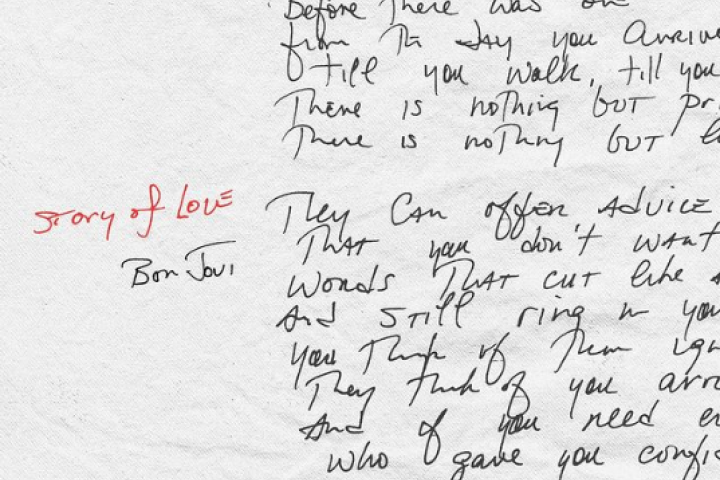 Before There was
from The day you
till you walk, till you
There is nothing but
There is nothing but
Story of Love
Bon Jovi
They can offer advice
That you don't want
Words That cut like
And still ring in
you Think of Them
They think of you
And if you need
Who gave you